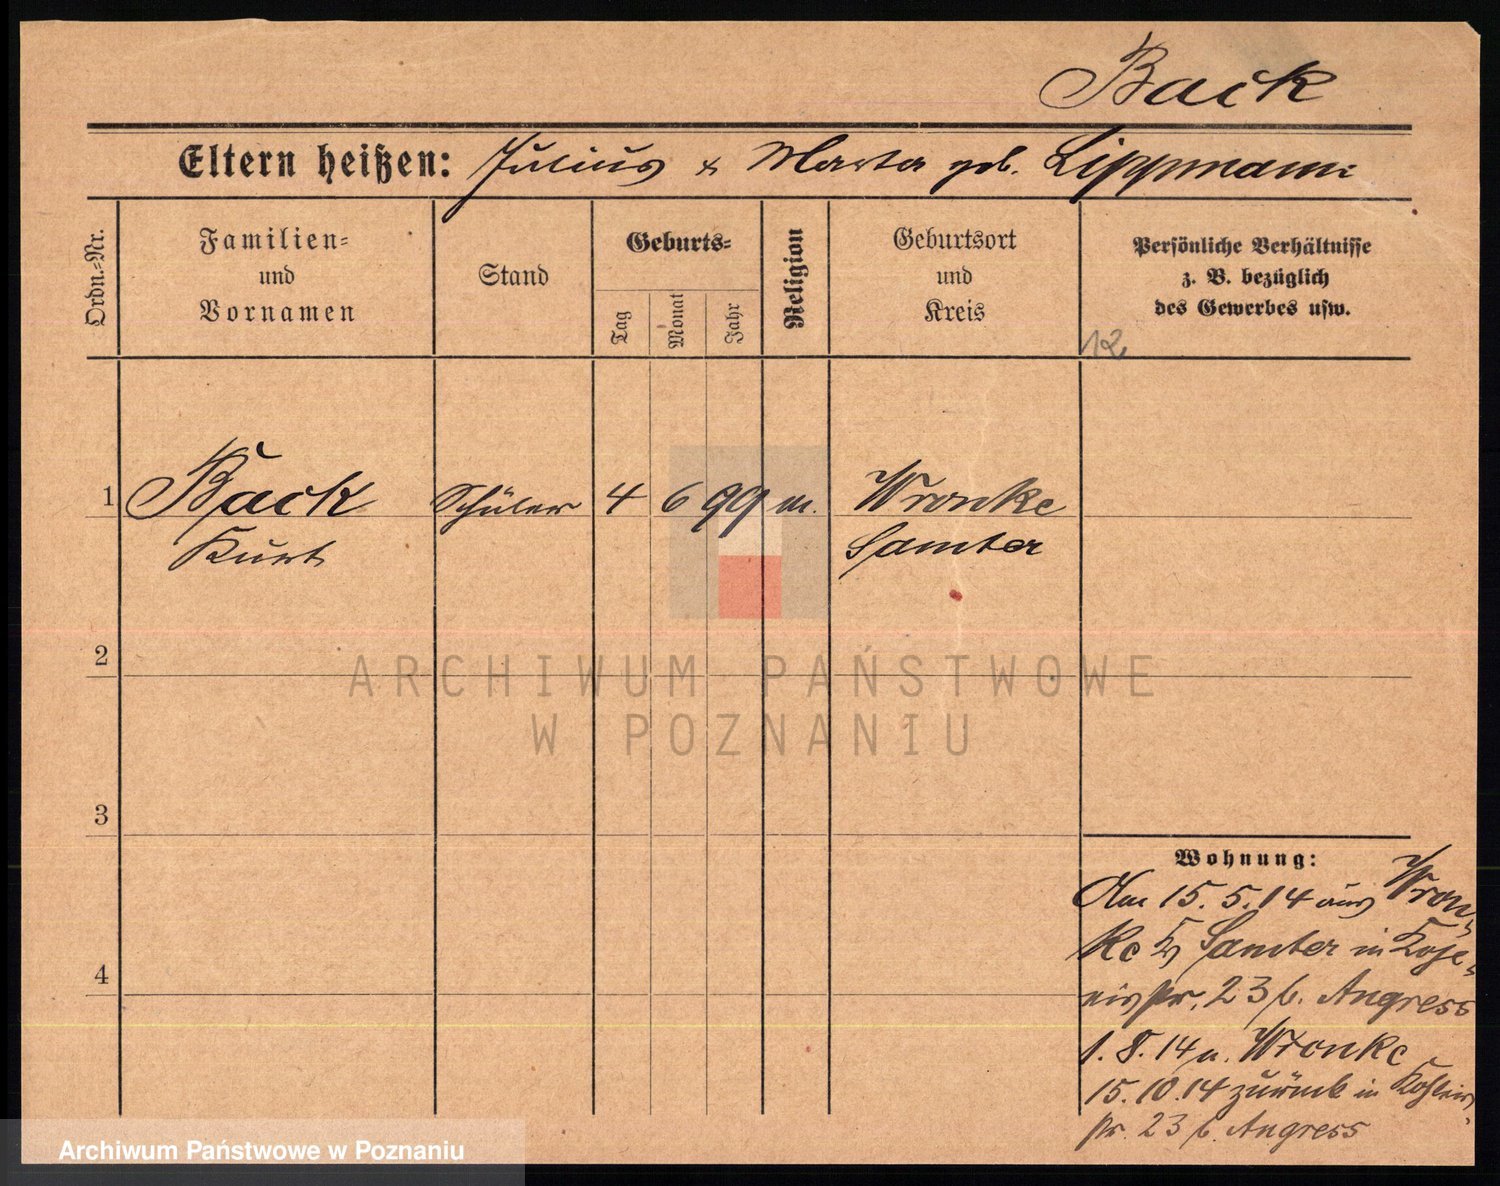 Back
Eltern heißen: Julius & Marta geb. Lippmann
Ordn.-Nr.
Familien-
und
Vornamen
Stand
Geburts-
Tag
Monat
Jahr
Religion
Geburtsort
und
Kreis
Persönliche Verhältnisse
z. B. bezüglich
des Gewerbes usw.
12
1 Back Schüler 4 6 99 m. Wronke
Kurt Samter
2
ARCHIWUM PAŃSTWOWE
W POZNANIU
3
Wohnung:
Am 15. 5. 14 aus Wron-
ke Samter in
23 b. Angress
1. 8. 14 n. Wronke
15. 10. 14 zurück in
23 b. Angress
4
Archiwum Państwowe w Poznaniu